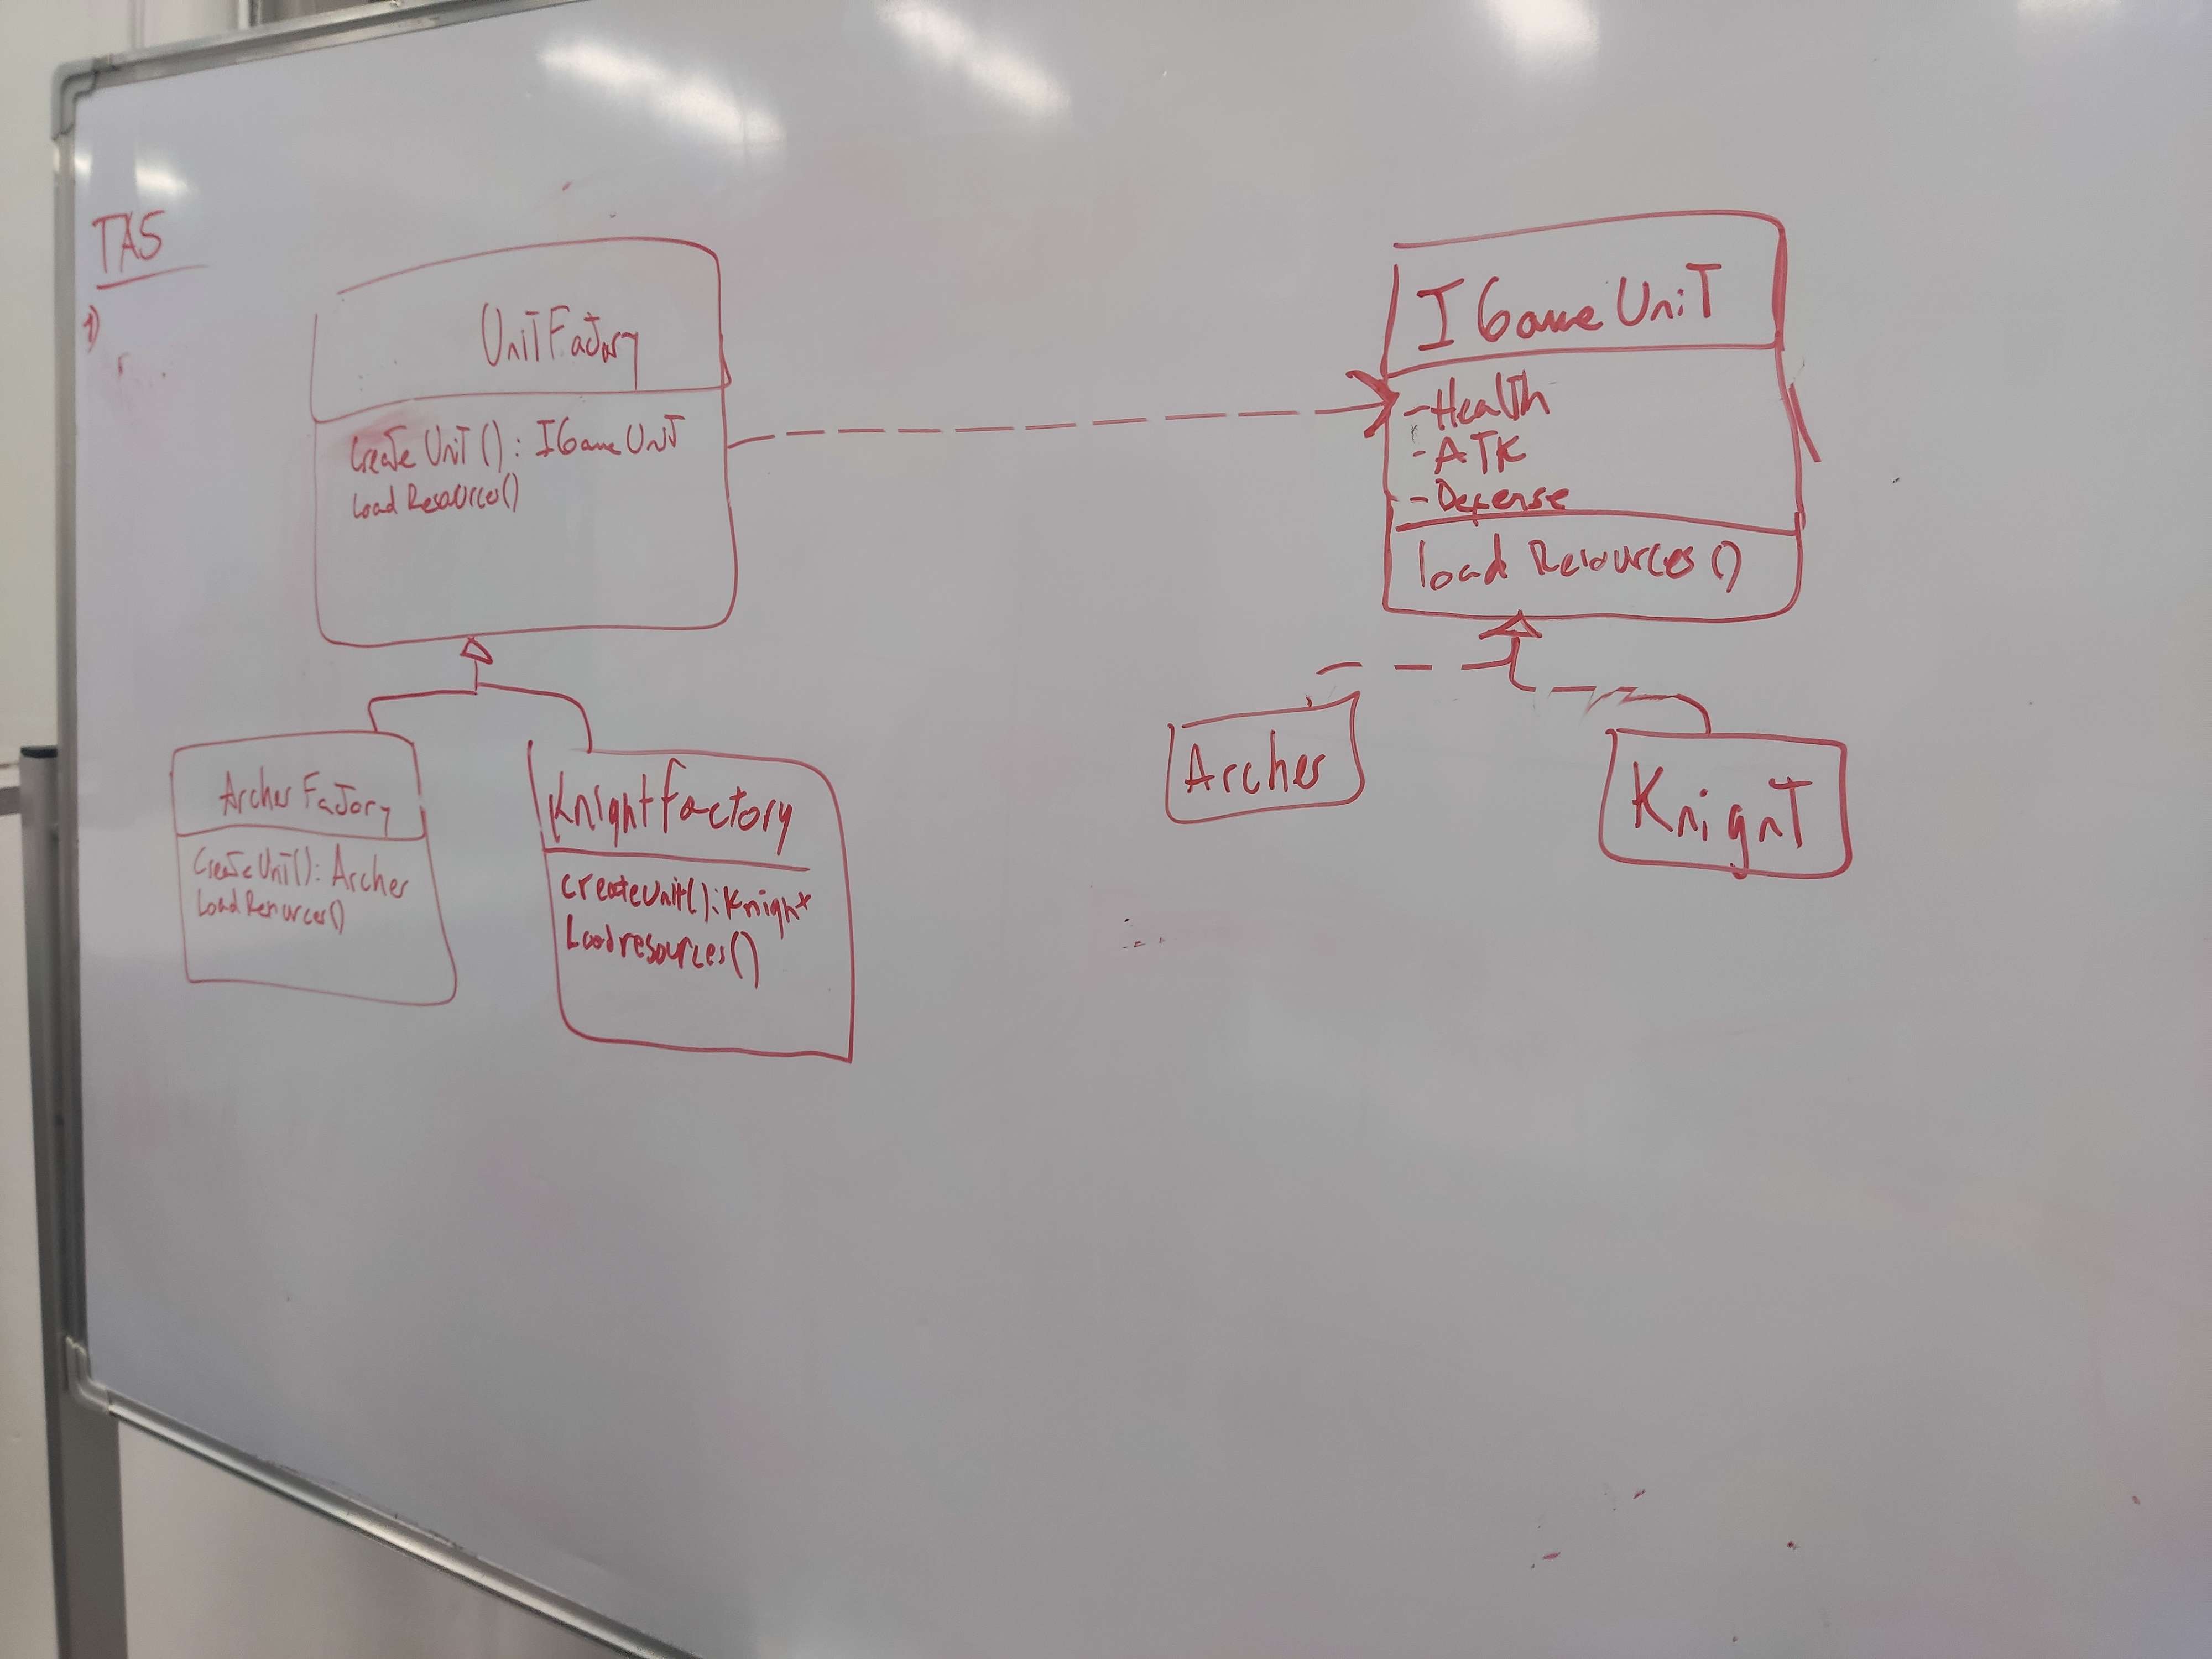 TAS
1)
UnitFactory
CreateUnit(): IGameUnit
LoadResources()
ArcherFactory
CreateUnit(): Archer
LoadResources()
KnightFactory
createunit(): Knight
Loadresources()
IGameUniT
-Health
-ATK
-Defense
load Resources()
Archer
KnighT